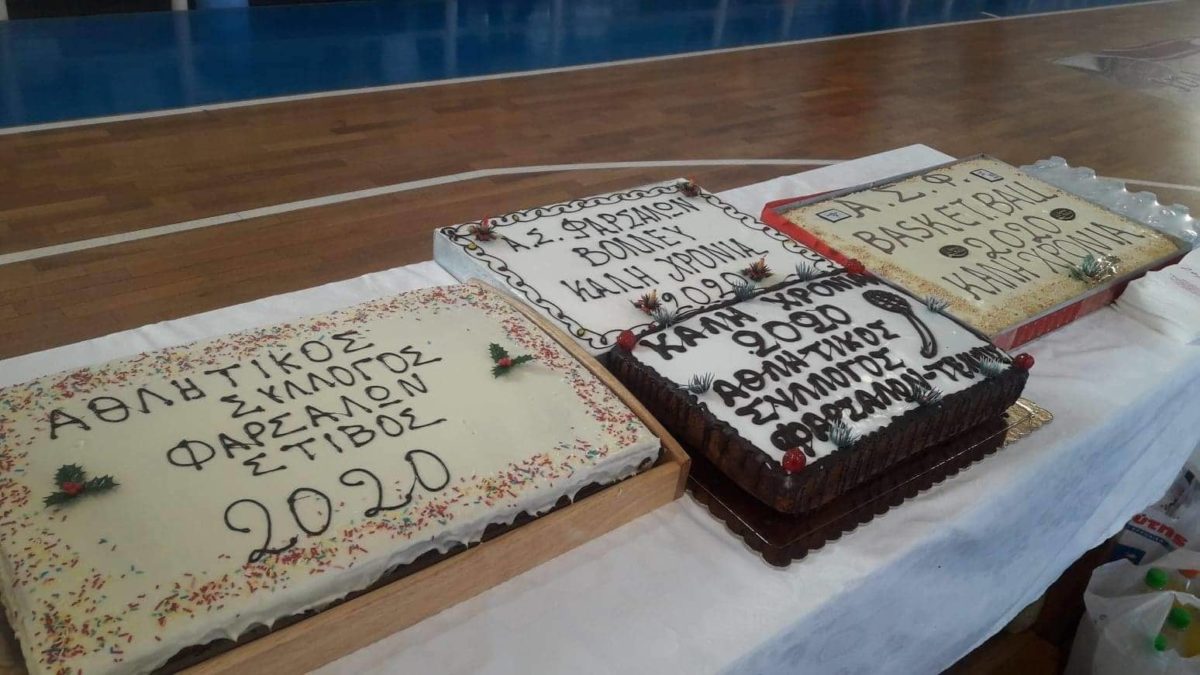 ΑΘΛΗΤΙΚΟΣ
ΣΥΛΛΟΓΟΣ
ΦΑΡΣΑΛΩΝ
ΣΤΙΒΟΣ
2020
Α.Σ. ΦΑΡΣΑΛΩΝ
ΒΟΛΛΕΥ
ΚΑΛΗ ΧΡΟΝΙΑ
2020
ΚΑΛΗ ΧΡΟΝΙΑ
2020
ΑΘΛΗΤΙΚΟΣ
ΣΥΛΛΟΓΟΣ
ΦΑΡΣΑΛΩΝ-
Α.Σ.Φ.
BASKET.BALL
2020
ΚΑΛΗ ΧΡΟΝΙΑ